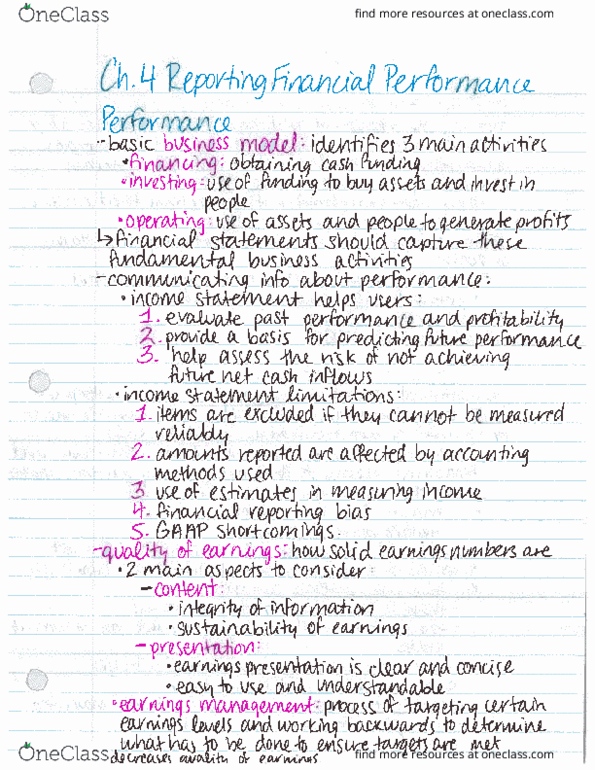 OneClass find more resources at oneclass.com
Ch. 4 Reporting Financial Performance
Performance
- basic business model: identifies 3 main activities
• financing: obtaining cash funding
• investing: use of funding to buy assets and invest in
people
• operating: use of assets and people to generate profits
↳ financial statements should capture these
fundamental business activities
- communicating info about performance:
• income statement helps users:
1. evaluate past performance and profitability
2. provide a basis for predicting future performance
3. help assess the risk of not achieving
future net cash inflows
• income statement limitations:
1. items are excluded if they cannot be measured
reliably
2. amounts reported are affected by accounting
methods used
3. use of estimates in measuring income
4. financial reporting bias
5. GAAP shortcomings
- quality of earnings: how solid earnings numbers are
• 2 main aspects to consider:
- content:
• integrity of information
• sustainability of earnings
- presentation:
• earnings presentation is clear and concise
• easy to use and understandable
• earnings management: process of targeting certain
earnings levels and working backwards to determine
what has to be done to ensure targets are met
decreases quality of earnings
OneClass find more resources at oneclass.com